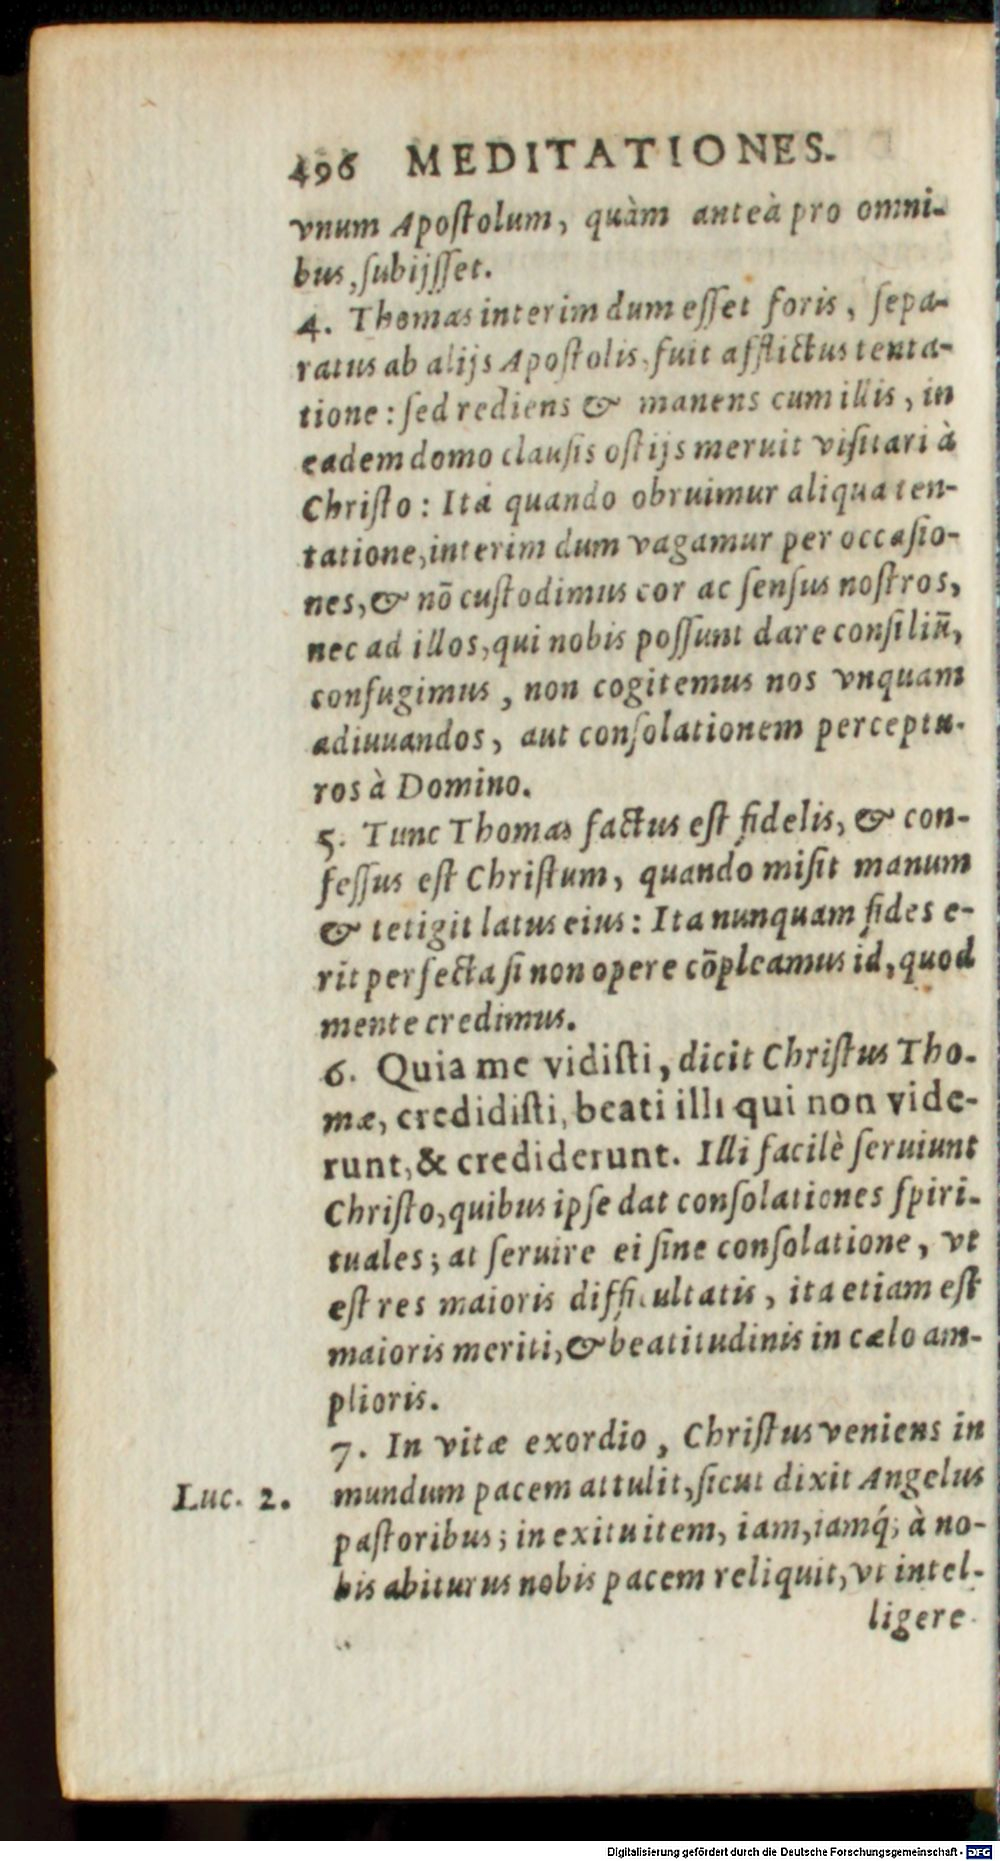 496 MEDITATIONES.
vnum Apoſtolum, quàm anteà pro omni-
bus, ſubijſſet.
4. Thomas interim dum eſſet foris, ſepa-
ratus ab alijs Apoſtolis, fuit afflictus tenta-
tione: ſed rediens & manens cum illis, in
eadem domo clauſis oſtijs meruit viſitari à
Chriſto: Ita quando obruimur aliqua ten-
tatione, interim dum vagamur per occaſio-
nes, & nō cuſtodimus cor ac ſenſus noſtros,
nec ad illos, qui nobis poſſunt dare conſiliū,
confugimus, non cogitemus nos vnquam
adiuuandos, aut conſolationem perceptu-
ros à Domino.
5. Tunc Thomas factus eſt fidelis, & con-
feſſus eſt Chriſtum, quando miſit manum
& tetigit latus eius: Ita nunquam fides e-
rit perfecta ſi non opere cōpleamus id, quod
mente credimus.
6. Quia me vidiſti, dicit Chriſtus Tho-
mæ, credidiſti, beati illi qui non vide-
runt, & crediderunt. Illi facilè ſeruiunt
Chriſto, quibus ipſe dat conſolationes ſpiri-
tuales; at ſeruire ei ſine conſolatione, vt
eſt res maioris difficultatis, ita etiam eſt
maioris meriti, & beatitudinis in cælo am-
plioris.
7. In vitæ exordio, Chriſtus veniens in
Luc. 2. mundum pacem attulit, ſicut dixit Angelus
paſtoribus; in exitu item, iam, iamq́; à no-
bis abiturus nobis pacem reliquit, vt intel-
ligere
Digitalisierung gefördert durch die Deutsche Forschungsgemeinschaft - DFG